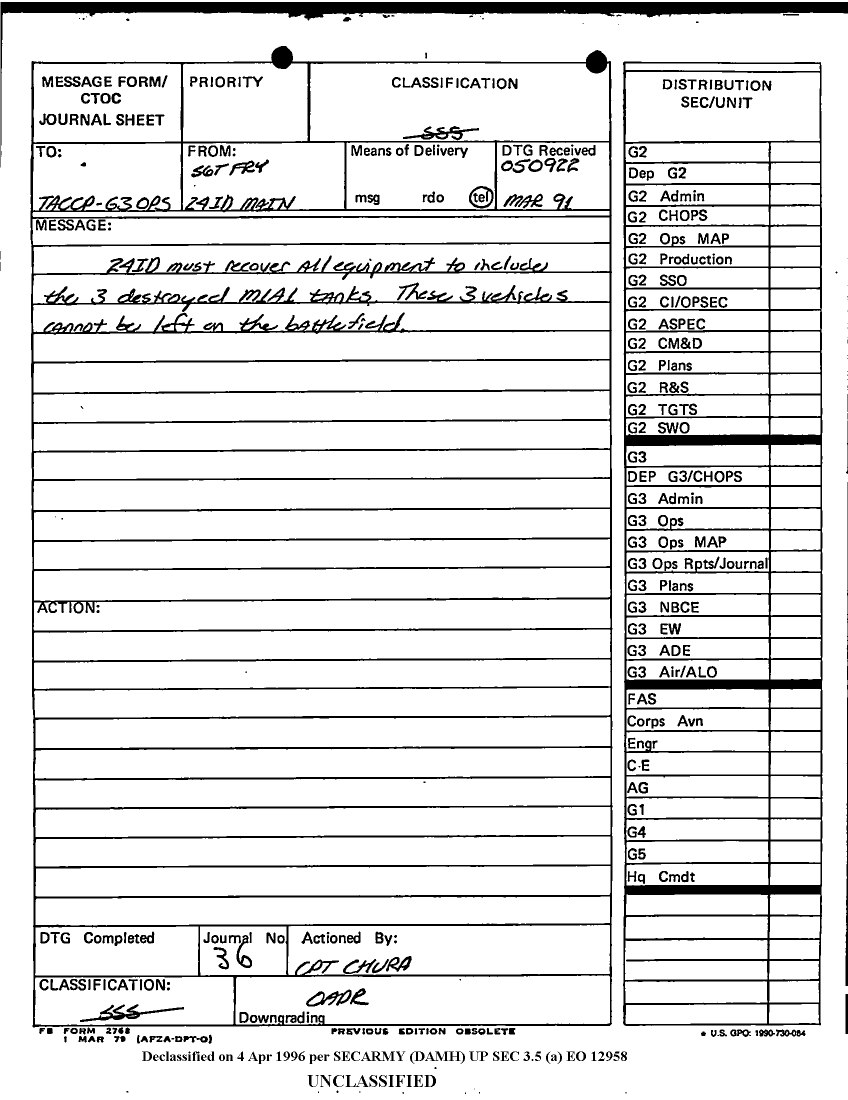 MESSAGE FORM/
CTOC
JOURNAL SHEET
PRIORITY
CLASSIFICATION
SSS
TO:
TACCP-G3 OPS
FROM:
SGT FRY
24ID MAIN
Means of Delivery
msg rdo tel
DTG Received
050922
MAR 91
MESSAGE:
24ID must recover all equipment to include
the 3 destroyed M1A1 tanks. These 3 vehicles
cannot be left on the battlefield.
ACTION:
DTG Completed
Journal No.
36
Actioned By:
CPT CHURA
CLASSIFICATION:
SSS
OADR
Downgrading
DISTRIBUTION
SEC/UNIT
G2
Dep G2
G2 Admin
G2 CHOPS
G2 Ops MAP
G2 Production
G2 SSO
G2 CI/OPSEC
G2 ASPEC
G2 CM&D
G2 Plans
G2 R&S
G2 TGTS
G2 SWO
G3
DEP G3/CHOPS
G3 Admin
G3 Ops
G3 Ops MAP
G3 Ops Rpts/Journal
G3 Plans
G3 NBCE
G3 EW
G3 ADE
G3 Air/ALO
FAS
Corps Avn
Engr
C-E
AG
G1
G4
G5
Hq Cmdt
FB FORM 2768
1 MAR 79 (AFZA-DPT-O)
PREVIOUS EDITION OBSOLETE
U.S. GPO: 1990-730-084
Declassified on 4 Apr 1996 per SECARMY (DAMH) UP SEC 3.5 (a) EO 12958
UNCLASSIFIED